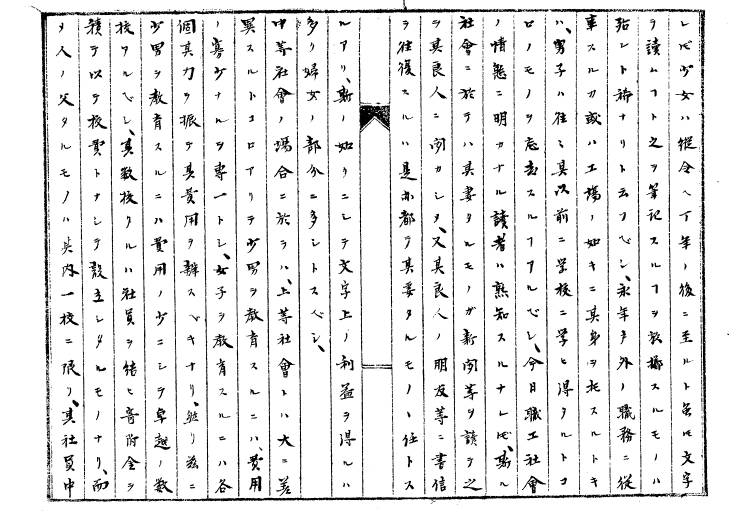 レ𪜈少女ハ縦令ヘ丁年ノ後ニ至ルト虽𪜈文字
ヲ讀ムヿト之ヲ筆記スルヿヲ放擲スルモノハ
殆ント稀ナリト云フベシ、永年戸外ノ職務ニ従
事スルカ或ハ工場ノ如キニ其身ヲ托スルトキ
ハ、男子ハ往々其以前ニ学校ニ学ヒ得タルトコ
ロノモノヲ忘去スルヿアルベシ、今日職工社會
ノ情態ニ明カナル讀者ハ熟知スルナレ𪜈、斯ル
社會ニ於テハ其妻タルモノガ新聞等ヲ読テ之
ヲ其良人ニ聞カシメ、又其良人ノ朋友等ニ書信
ヲ往復スルハ是亦都テ其妻タルモノヽ任トス
ルアリ、斯ノ如クニシテ文字上ノ利益ヲ得ルハ
多ク婦女ノ部分ニ多シトスベシ、
中等社會ノ場合ニ於テハ、上等社會トハ大ニ差
異スルトコロアリテ少男ヲ教育スルニハ、費用
ノ寡少ナルヲ専一トシ、女子ヲ教育スルニハ各
個其力ヲ振テ其費用ヲ辨スベキナリ、然リ茲ニ
少男ヲ教育スルニハ費用ノ少ニシテ卓越ノ数
校アルベシ、其数校タルハ社員ヲ結ヒ寄附金ヲ
積テ以テ校費トナシテ設立シタルモノナリ、而
メ人ノ父タルモノハ其内一校ニ限リ、其社員中